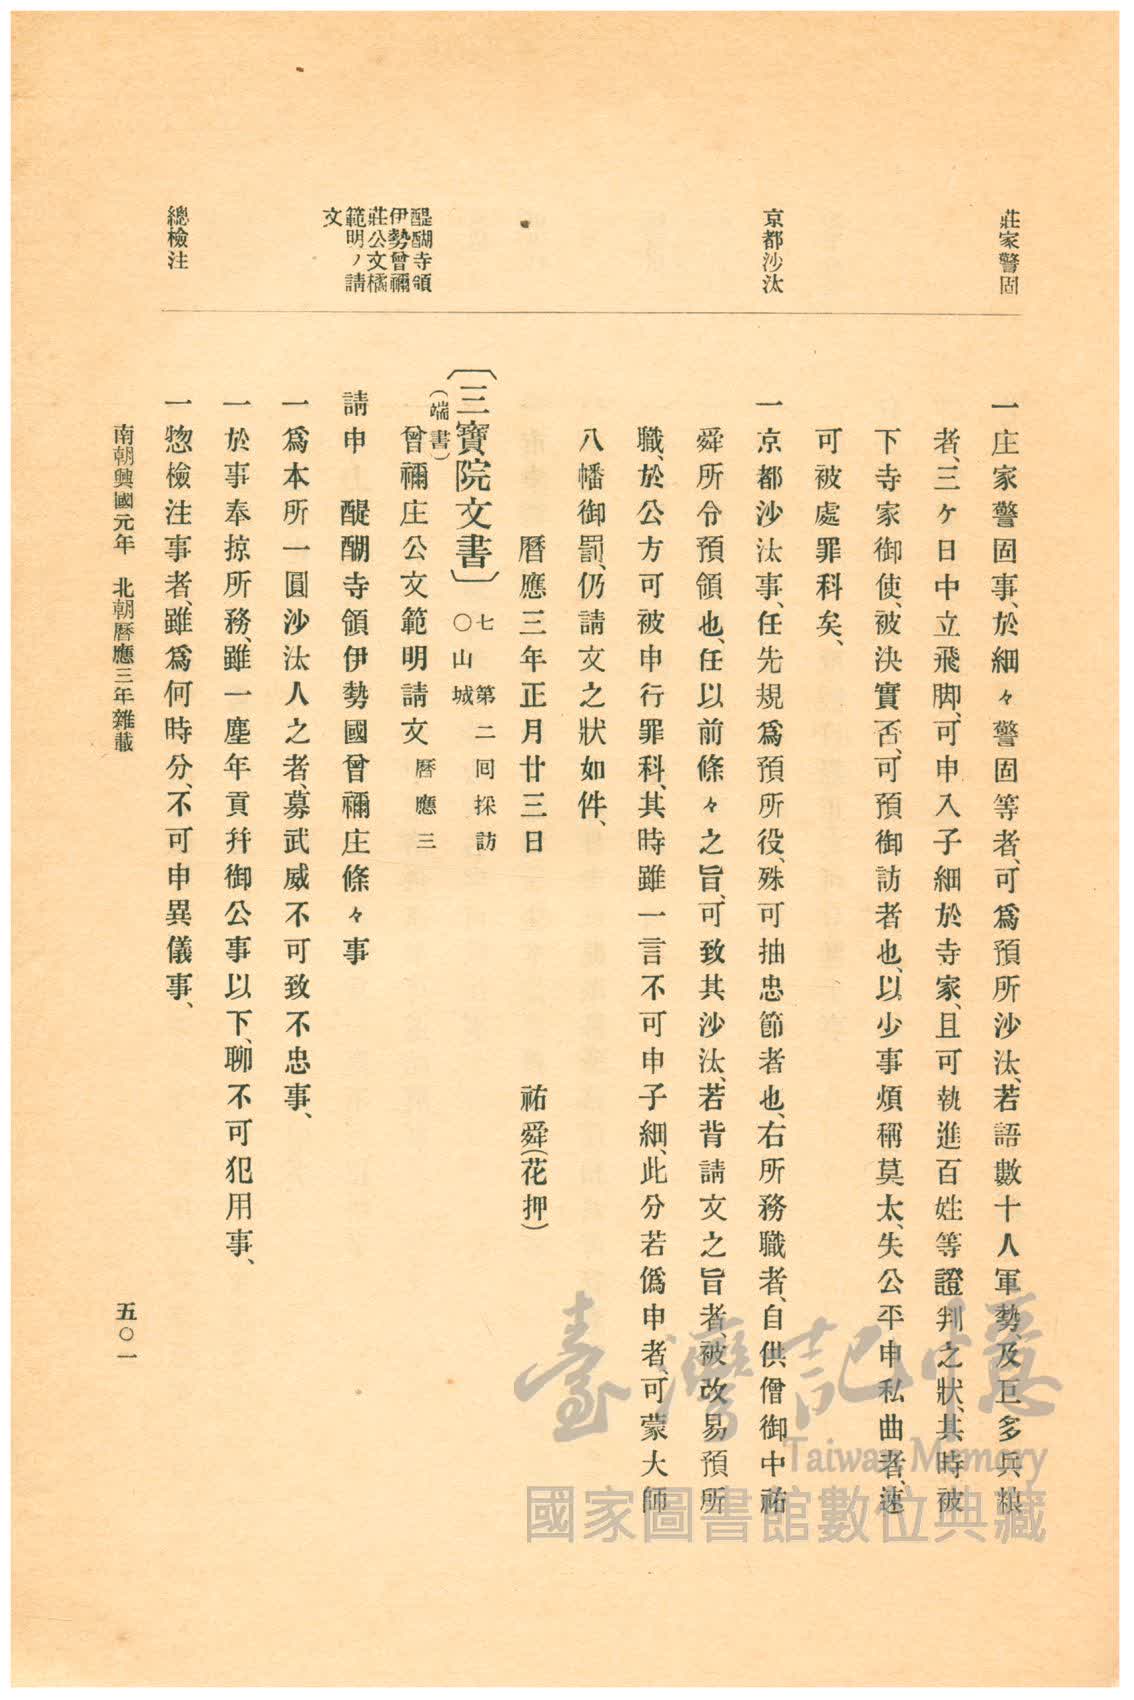 莊家警固
京都沙汰
醍醐寺領
伊勢曾禰
莊公文橘
範明ノ請
文
總檢注
一庄家警固事、於細々警固等者、可爲預所沙汰、若語數十人軍勢、及巨多兵粮
者、三ケ日中立飛脚、可申入子細於寺家、且可執進百姓等證判之狀、其時被
下寺家御使、被決實否、可預御訪者也、以少事煩稱莫太、失公平申私曲者、速
可被處罪科矣、
一京都沙汰事、任先規爲預所役、殊可抽忠節者也、右所務職者、自供僧御中祐
舜所令預領也、任以前條々之旨、可致其沙汰、若背請文之旨者、被改易預所
職、於公方可被申行罪科、其時雖一言不可申子細、此分若僞申者、可蒙大師
八幡御罰、仍請文之狀如件、
曆應三年正月廿三日 祐舜(花押)
〔三寶院文書〕 七 第二回採訪
〇山城
(端書)
曾禰庄公文範明請文 曆應三
請申 醍醐寺領伊勢國曾禰庄條々事
一爲本所一圓沙汰人之者、募武威不可致不忠事、
一於事奉掠所務、雖一塵年貢幷御公事以下、聊不可犯用事、
一惣檢注事者、雖爲何時分、不可申異儀事、
南朝興國元年 北朝曆應三年雜載
五〇一
臺灣記憶
Taiwan Memory
國家圖書館數位典藏